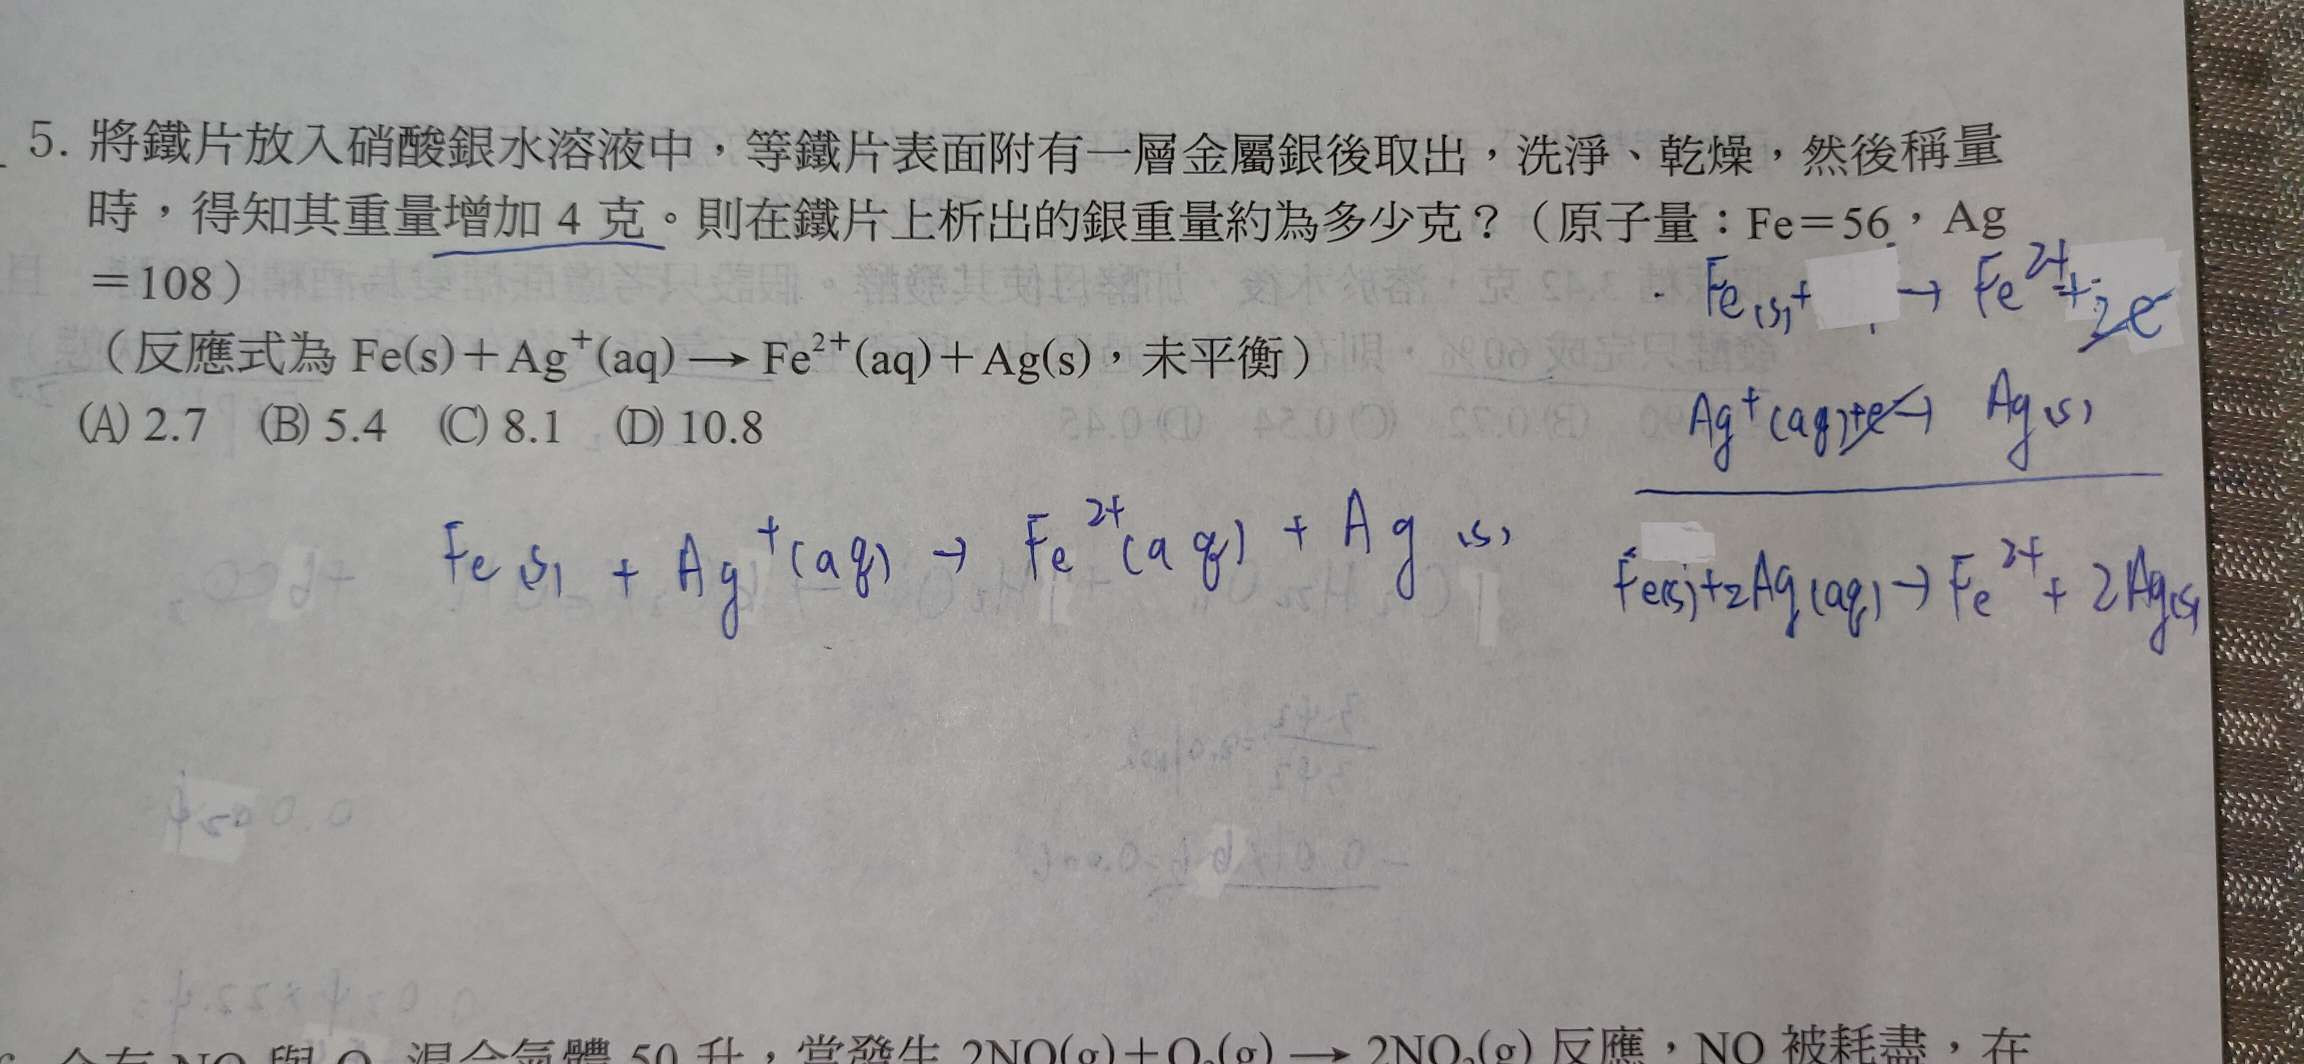 5. 將鐵片放入硝酸銀水溶液中，等鐵片表面附有一層金屬銀後取出，洗淨、乾燥，然後稱量
時，得知其重量增加 4 克。則在鐵片上析出的銀重量約為多少克？（原子量：Fe＝56，Ag
＝108）
（反應式為 Fe(s)＋Ag⁺(aq)⟶Fe²⁺(aq)＋Ag(s)，未平衡）
(A) 2.7 (B) 5.4 (C) 8.1 (D) 10.8
Fe(s)+ → Fe²⁺+2e
Ag⁺(aq)+e→ Ag(s)
Fe(s) + Ag⁺(aq) → Fe²⁺(aq) + Ag(s)
Fe(s)+2Ag(aq)→Fe²⁺+2Ag(s)
混合氣體 50 升，當發生 2NO(g)＋O₂(g)⟶2NO₂(g) 反應，NO 被耗盡，在